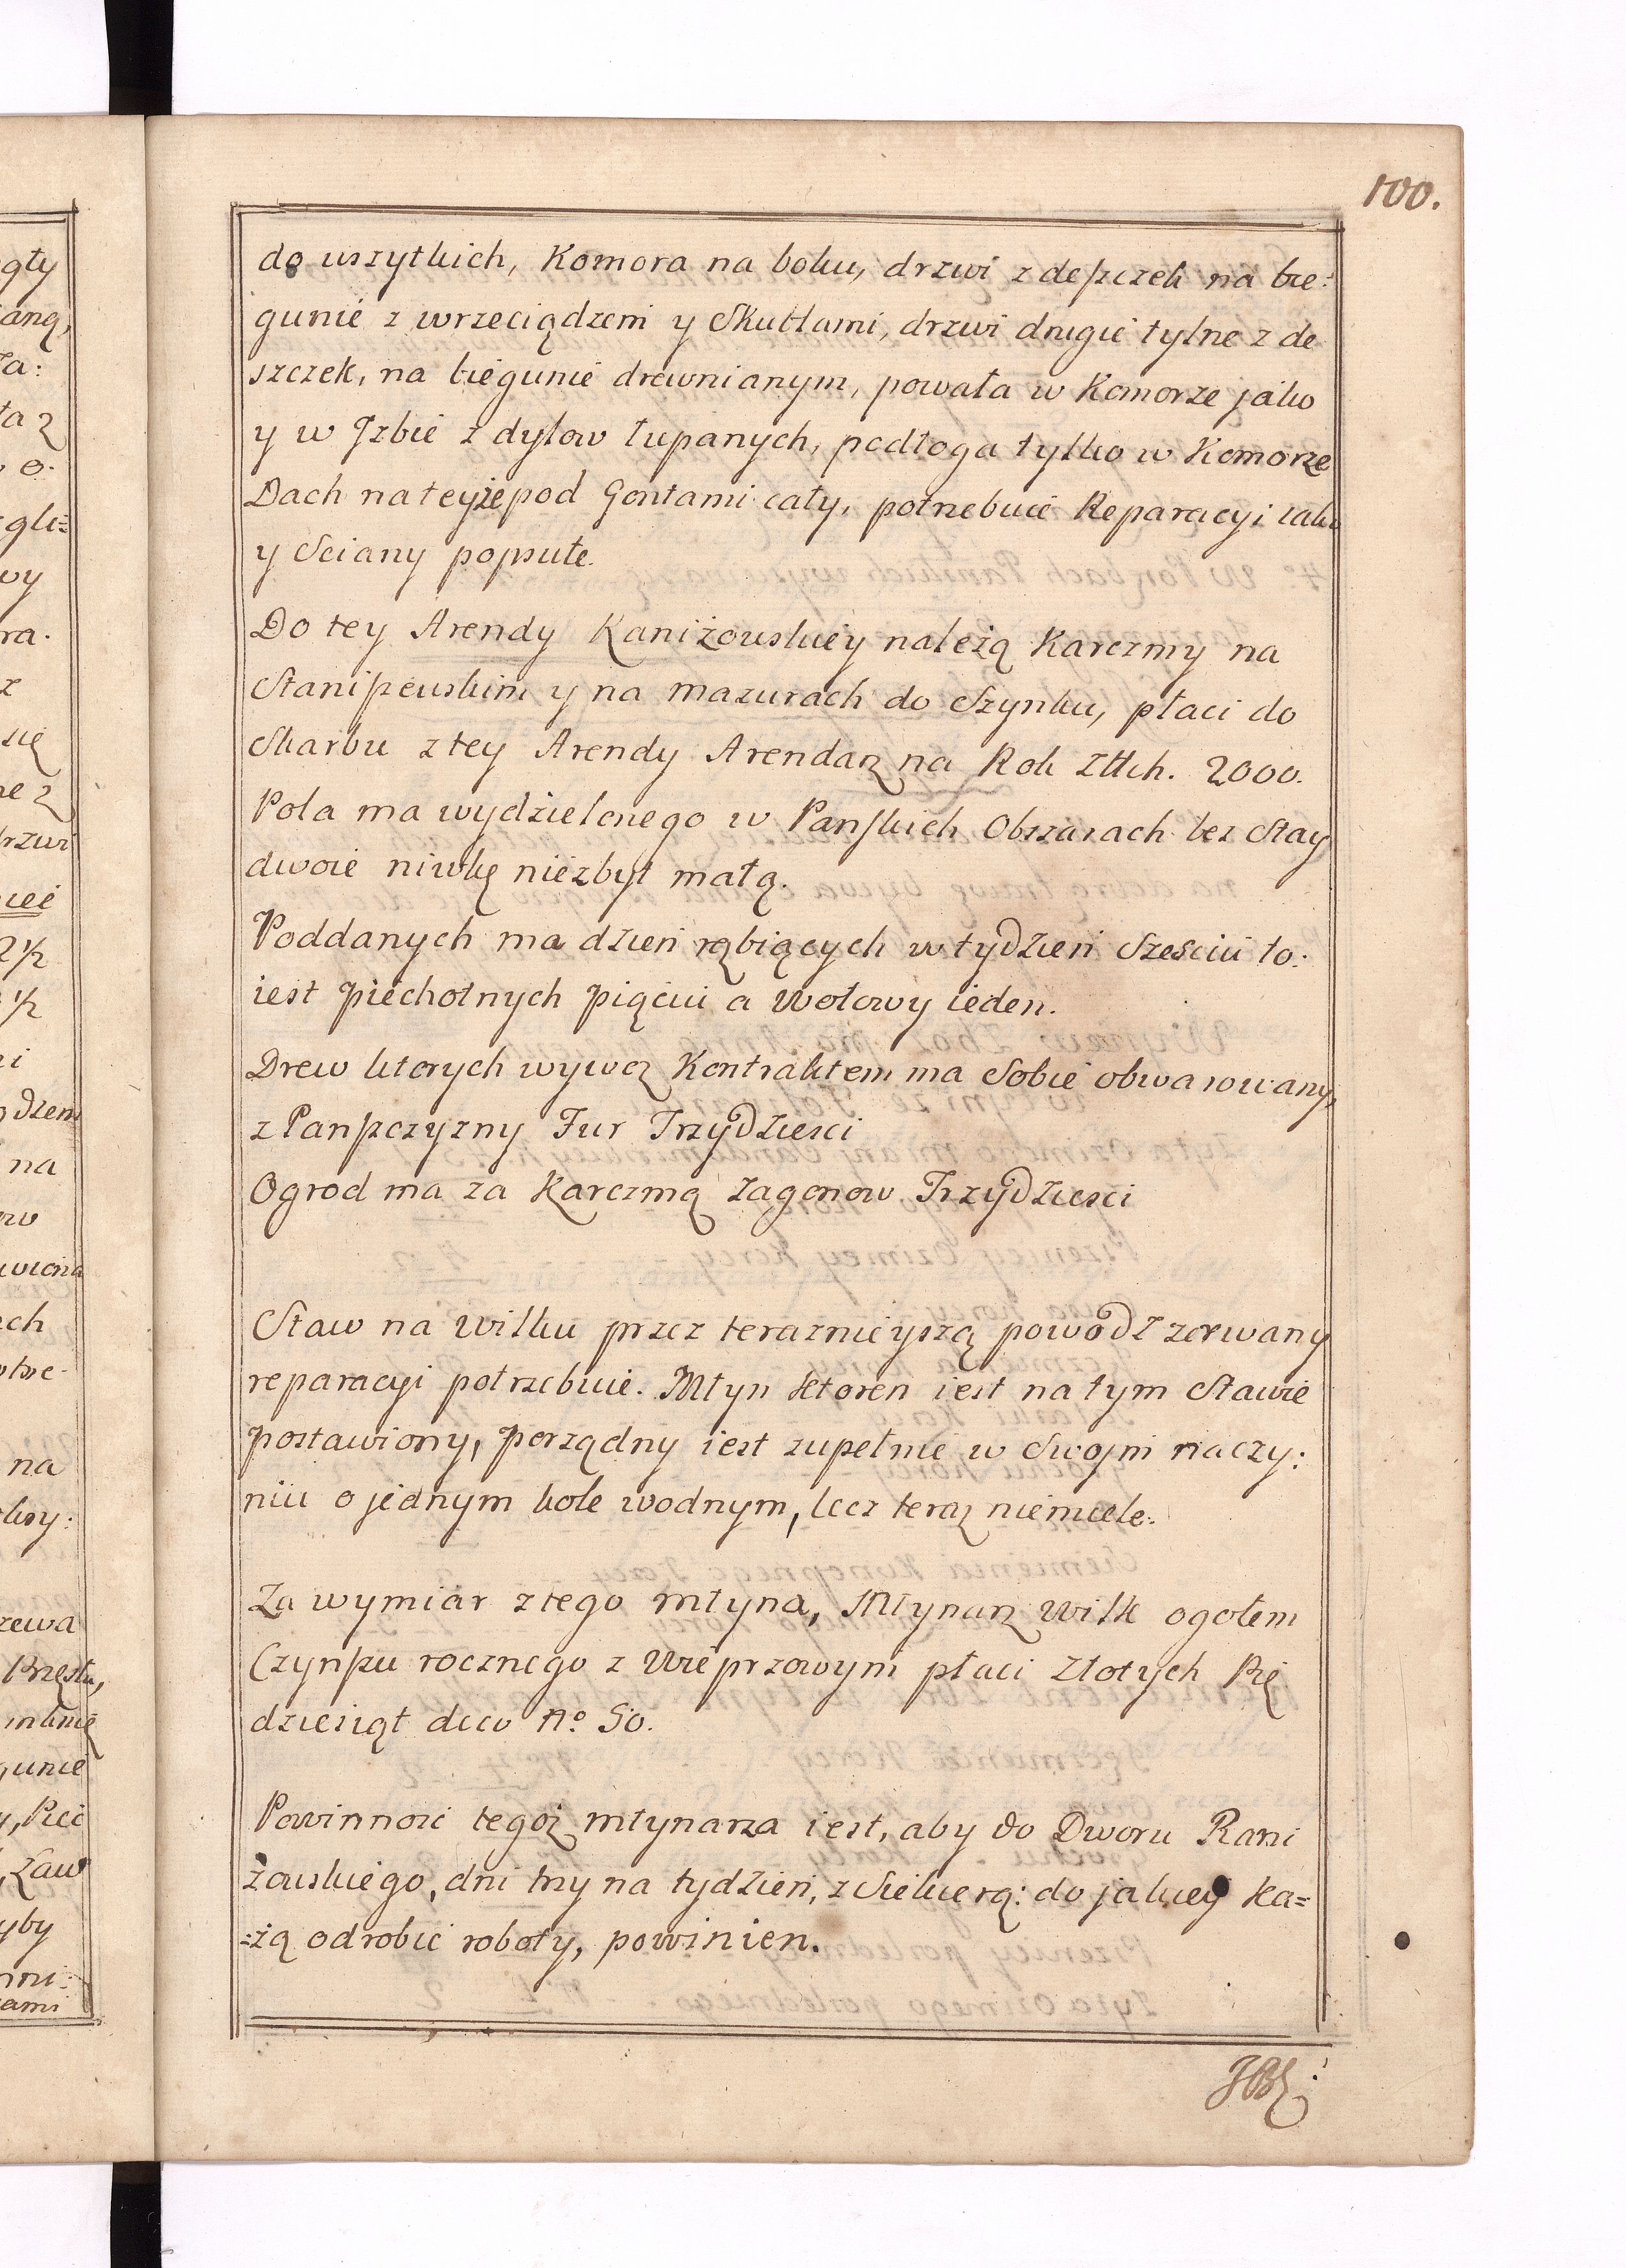 100.
do wszytkich, Komora na boku, drzwi z deszczek na bie:
gunie z wrzeciądzem y Skublami, drzwi drugie tylne z de
szczek, na biegunie drewnianym, powała w Komorze jako
y w Jzbie z dylow łupanych, podłoga tylko w Komorze
Dach na teyże pod Gontami cały, potrzebuie Reparacyi iako
y Sciany popsute.
Do tey Arendy Raniżowskiey należą Karczmy na
Staniszewskim y na mazurach do Szynku, płaci do
Skarbu z tey Arendy Arendarz na Rok Złłch. 2000.
Pola ma wydzielonego w Panskich Obszarach bez Stay
dwoie niwkę niezbyt małą.
Poddanych ma dzień robiących w tydzień Sześciu to:
iest piechotnych pięciu a Wołowy ieden.
Drew ktorych wywoz Kontraktem ma Sobie obwarowany,
z Panszczyzny Fur Trzydziesci
Ogrod ma za Karczmą Zagonow Trzydziesci
Staw na Wilku przez teraznieyszą powodz zerwany
reparacyi potrzebuie. Młyn ktoren iest na tym Stawie
postawiony, porządny iest zupełnie w Swojm naczy:
niu o jednym kole wodnym, lecz teraz niemiele.
Za wymiar z tego młyna, Młynarz Wilk ogołem
Czynszu rocznego z Wieprzowym płaci Złotych Pię
dziesiąt dico No 50.
Powinność tegoż młynarza iest, aby do Dworu Rani
żowskiego, dni trzy na tydzień, z Siekierą: do jakiey ka=
=żą odrobić roboty, powinien.